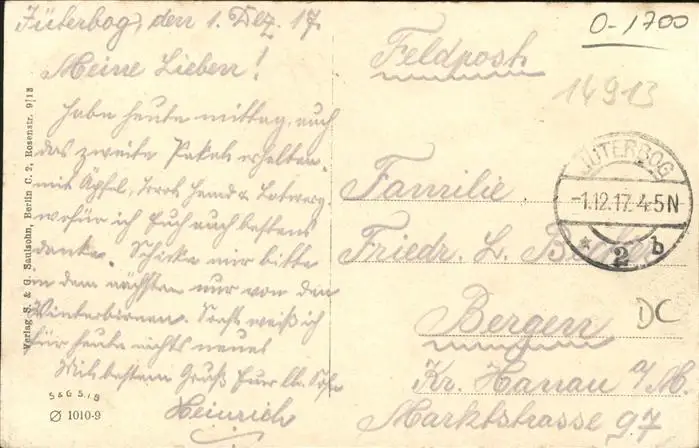 Jüterbog, den 1. Dez. 17.
Meine Lieben!
Habe heute mittag, auch
das zweite Paket erhalten.
mit Äpfel, Brot, Hemd & Latwerg,
wofür ich Euch auch bestens
danke. Schicke mir bitte
in dem nächsten nur von den
Winterbirnen. Sonst weiß ich
für heute nichts neues
Mit bestem Gruß Euer lb. Sohn
Heinrich
Verlag S. & G. Saulsohn, Berlin C. 2, Rosenstr. 9/13
S & G S. / B
1010-9
0-1700
Feldpost
14913
JÜTERBOG
-1.12.17.4-5N
* 2 b
Familie
Friedr. L.
Bergen
DC
Kr. Hanau a/M.
Marktstrasse 97